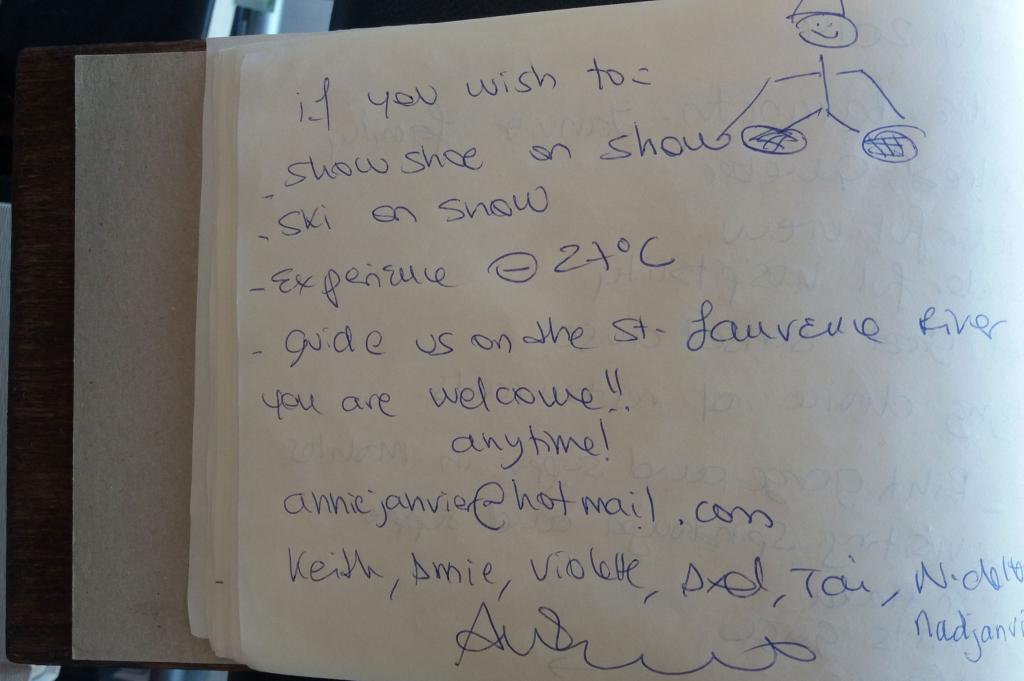 if you wish to:
- show shoe on show
- ski on snow
- Experience ⊖ 27°C
- guide us on the St-Laurence River
you are welcome!!
anytime!
anniejanvier@hotmail.com
Keith, Annie, Violette, Axel, Tai,